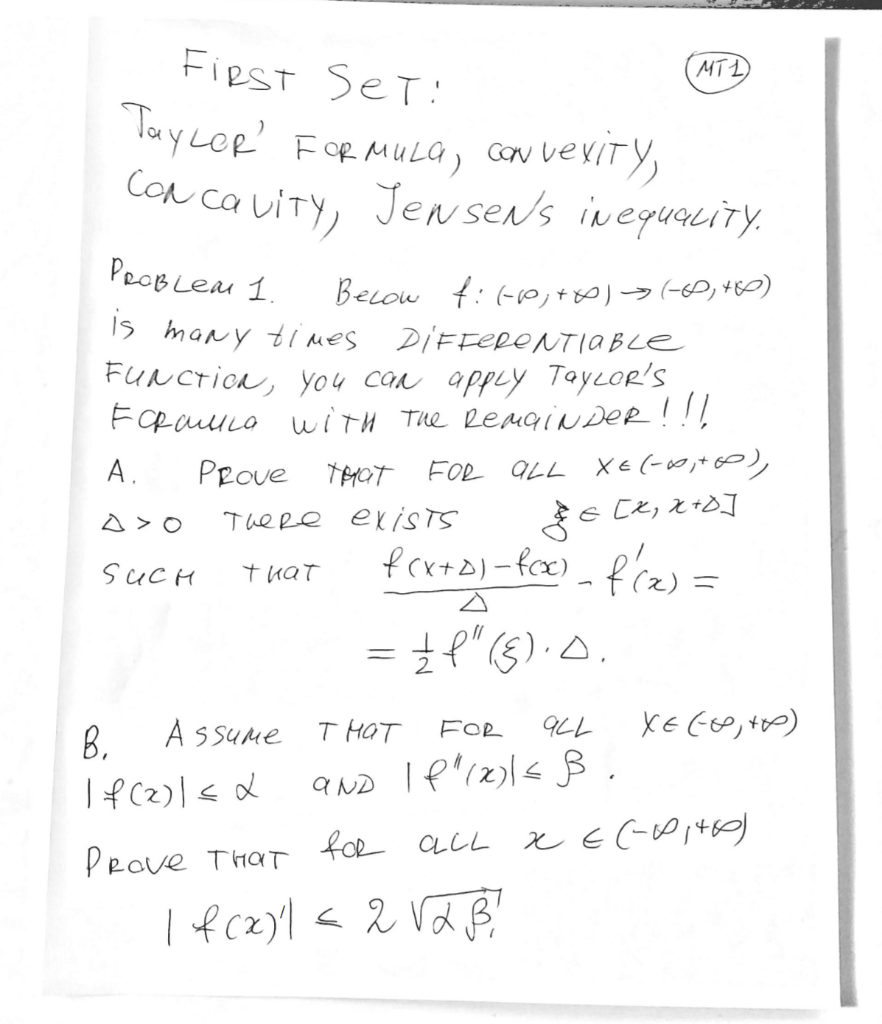 FIRST SET:
MT1
Taylor' FORMULA, convexity,
Concavity, Jensen's inequality.
PROBLEM 1. Below f: (-∞, +∞) → (-∞, +∞)
is many times DIFFERENTIABLE
FUNCTION, you can apply TAYLOR'S
FORMULA WITH THE REMAINDER!!!
A. PROVE THAT FOR ALL x ∈ (-∞, +∞),
Δ > 0 THERE EXISTS ξ ∈ [x, x+Δ]
SUCH THAT (f(x+Δ) - f(x))/Δ - f'(x) =
= 1/2 f''(ξ)·Δ.
B. ASSUME THAT FOR ALL x ∈ (-∞, +∞)
|f(x)| ≤ α AND |f''(x)| ≤ β.
PROVE THAT for ALL x ∈ (-∞, +∞)
|f(x)'| ≤ 2√(αβ)!